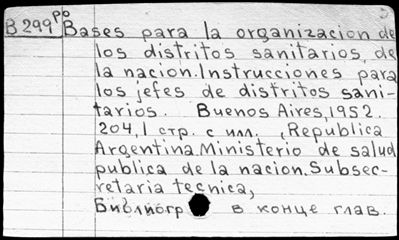 В 299 ро Bases para la organizacion de
los distritos sanitarios de
la nacion. Instrucciones para
los jefes de distritos sani-
tarios. Buenos Aires, 1952.
204,1 стр. с илл. , Republica
Argentina. Ministerio de salud
publica de la nacion. Subsec-
retaria tecnica,
Библиогр в конце глав.